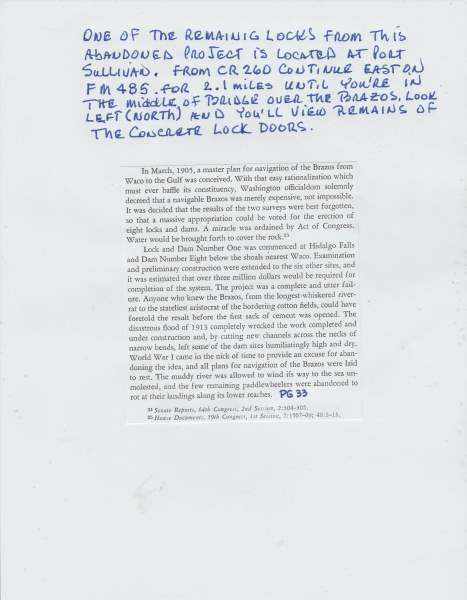 ONE OF THE REMAINIG LOCKS FROM THIS
ABANDONED PROJECT IS LOCATED AT PORT
SULLIVAN. FROM CR 260 CONTINUE EAST ON
FM 485 FOR 2.1 MILES UNTIL YOU'RE IN
THE MIDDLE OF BRIDGE OVER THE BRAZOS. LOOK
LEFT (NORTH) AND YOU'LL VIEW REMAINS OF
THE CONCRETE LOCK DOORS.
In March, 1905, a master plan for navigation of the Brazos from
Waco to the Gulf was conceived. With that easy rationalization which
must ever baffle its constituency, Washington officialdom solemnly
decreed that a navigable Brazos was merely expensive, not impossible.
It was decided that the results of the two surveys were best forgotten,
so that a massive appropriation could be voted for the erection of
eight locks and dams. A miracle was ordained by Act of Congress.
Water would be brought forth to cover the rock.²⁵
Lock and Dam Number One was commenced at Hidalgo Falls
and Dam Number Eight below the shoals nearest Waco. Examination
and preliminary construction were extended to the six other sites, and
it was estimated that over three million dollars would be required for
completion of the system. The project was a complete and utter fail-
ure. Anyone who knew the Brazos, from the longest-whiskered river-
rat to the stateliest aristocrat of the bordering cotton fields, could have
foretold the result before the first sack of cement was opened. The
disastrous flood of 1913 completely wrecked the work completed and
under construction and, by cutting new channels across the necks of
narrow bends, left some of the dam sites humiliatingly high and dry.
World War I came in the nick of time to provide an excuse for aban-
doning the idea, and all plans for navigation of the Brazos were laid
to rest. The muddy river was allowed to wind its way to the sea un-
molested, and the few remaining paddlewheelers were abandoned to
rot at their landings along its lower reaches. PG 33
²⁴ Senate Reports, 64th Congress, 2nd Session, 2:304-305.
²⁵ House Documents, 59th Congress, 1st Session,